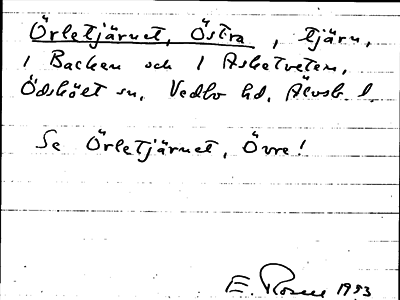 Örletjärnet, Östra, tjärn,
1 Backen och 1 Asketveten,
Ödsköet sn, Vedbo hd, Älvsb. l.
Se Örletjärnet, Övre!
E. Rosen 1933